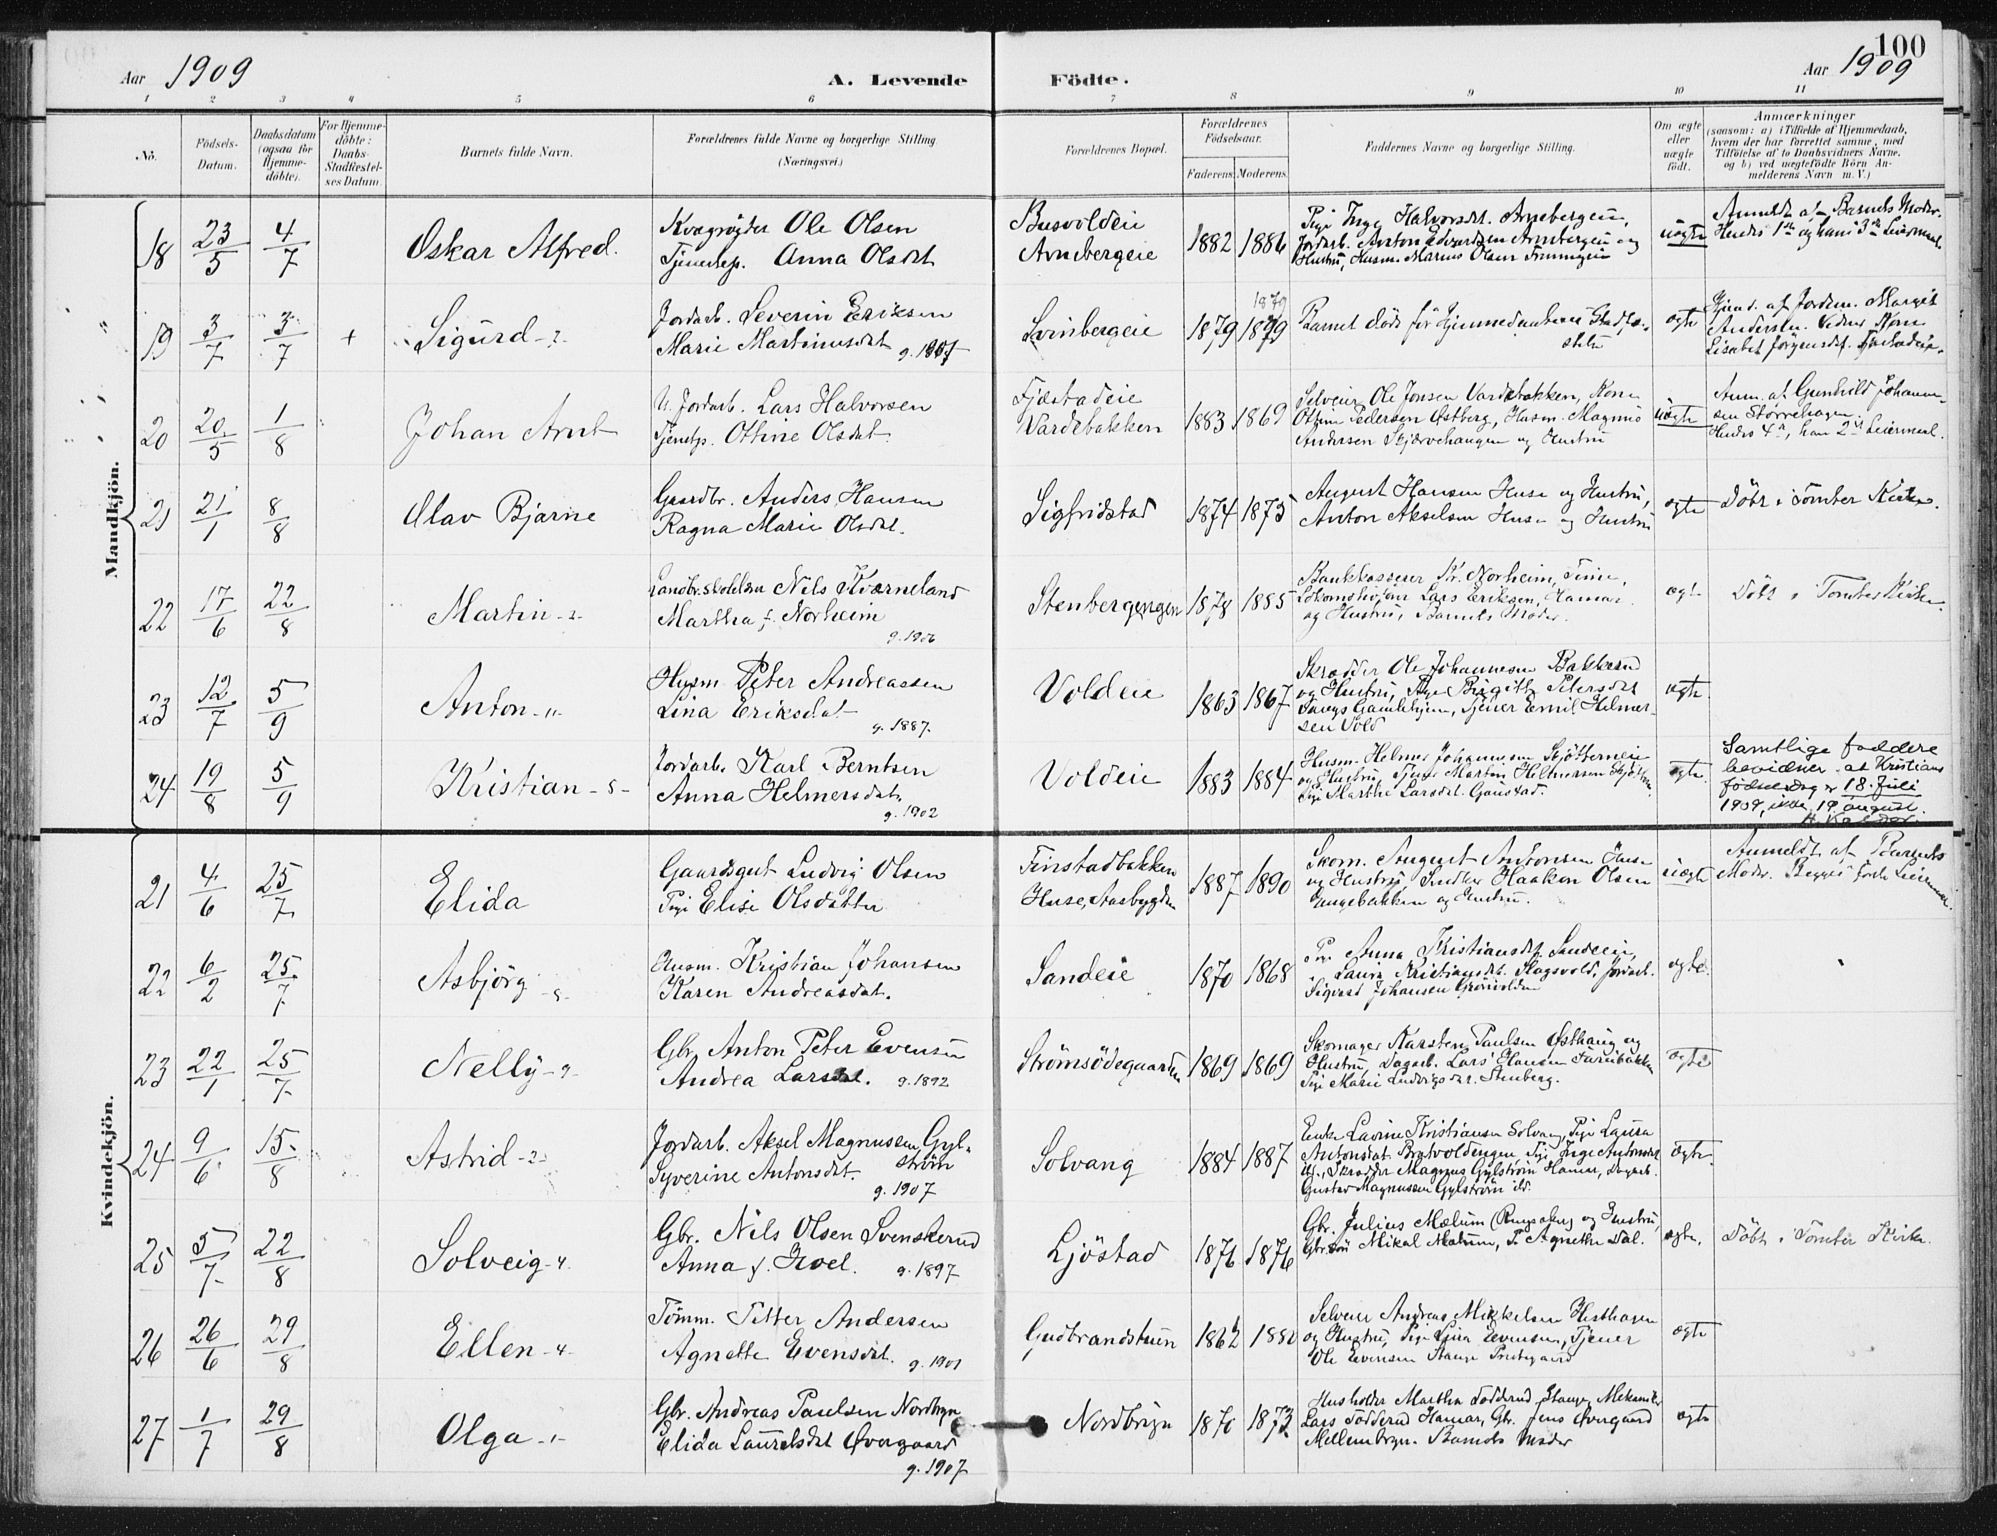 100
Aar 1909
A. Levende Födte.
Aar 1909
1 2 3 4 5 6 7 8 9 10 11
No.
Födsels-
Datum.
Daabsdatum
(ogsaa for
Hjemme-
döbte).
For Hjemme-
döbte:
Daabs-
Stadfæstel-
ses Datum.
Barnets fulde Navn.
Forældrenes fulde Navne og borgerlige Stilling
(Næringsvei.)
Forældrenes Bopæl.
Forældrenes
Födselsaar.
Faderens. Moderens.
Faddernes Navne og borgerlige Stilling.
Om ægte
eller
uægte
födt.
Anmærkninger
(saasom: a) i Tilfælde af Hjemmedaab,
hvem der har forrettet samme, med
Tilföielse af to Daabsvidners Navne,
og b) ved uægtefödte Börn An-
melderens Navn m. V.)
Mandkjön.
18 23/5 4/7 Oskar Alfred.
Ole Olsen
Anna Olsdat
Arnebergeie
1882 1886
Pige Inga Halvorsdt. Arnebergeie,
Jordarb. Anton Edvardsen Arnebergeie og
Hustru, Husm. Marius Olsen
uægte
Anmeldt af Barnets Moder.
19 3/7 3/7 + Sigurd -2-
Jordarb. Severin Eriksen
Marie Martinusdat g. 1907
Svinbergeie
1879 1879
1879
Barnet döde för Hjemmedaabens Stadfæ-
stelse
ægte
Hjemd. af Jordm. Margit
Andersen. Vidner Kone
Lisabet Jörgensdt.
20 20/5 1/8 Johan Arnt
U. Jordarb. Lars Halvorsen
Tjenstp. Ottine Olsdat.
Fjæstadeie
Vardebakken
1883 1869
Selveier Ole Jonsen Vardebakken, Kone
Ottine Pedersen Østberg, Husm. Magnus
Andersen Skjærvehangen og Hustru
uægte
Anm. af Gunhild Johann-
sen Störrehagen.
Hendes 4de, hans 2det Leiermaal.
21 21/1 8/8 Olav Bjarne
Gaardbr. Anders Hansen
Ragna Marie Olsdat.
Sigfridstad
1874 1875
August Hansen Huse og Hustru,
Anton Akselsen Huse og Hustru
ægte
Döbt i Tomter Kirke.
22 17/6 22/8 Martin -2-
Nils Kværneland
Martha f. Norheim
g. 1906
Stenbergengen
1878 1885
Bankkasserer Kr. Norheim, Time,
Lokomotivförer Lars Eriksen, Hamar
og Hustru, Barnets Moder.
ægt
Döbt i Tomter Kirke.
23 12/7 5/9 Anton -11-
Husm Peter Andreassen
Lina Eriksdat
g. 1887.
Voldeie
1863 1867
Skrædder Ole Johannesen Bakkerud
og Hustru, Pige Birgitte Petersdat
Gamlehjem, Tjener Emil Helmer-
sen Vold
ægte
24 19/8 5/9 Kristian -5-
Jordarb. Karl Berntsen
Anna Helmersdat.
g. 1902
Voldeie
1883 1884
Husm. Helmer Johannesen Skjötterneie
og Hustru, Tjener Martin Helmersen
Pige Marthe Larsdat. Gaustad.
ægte.
Samtlige faddere
bevidner at Kristians
födselsdag er 18. Juli
1909, ikke 19. august.
Kvindekjön.
21 4/6 25/7 Elida
Gaardsgut Ludvig Olsen
Pige Elise Olsdatter
Finstadbakken
Huse, Aasbygden
1887 1890
Skom. August Antonsen Huse
og Hustru, Snedker Haaken Olsen
Haugebakken og Hustru.
uægte
Anmeldt af Barnets
Moder. Begges förste Leiermaal.
22 6/2 25/7 Asbjörg -8-
Husm. Kristian Johansen
Karen Andreasdat.
Sandeie
1870 1868
Pige Anna Kristiansdt. Sandeie,
Laura Kristiansdt. Slagsvold, Jordarb.
Sigvard Johansen Grönvolden
ægte.
23 22/1 25/7 Nelly -9-
Gbr. Anton Peter Evensen
Andrea Larsdat. g. 1892
Strömsödegaarden
1869 1869
Skomager Karsten Paulsen Østhaug og
Hustru, Dagarb. Lars Hansen Furubakken
Pige Marie Ludvigsdat. Stenberg.
ægte
24 9/6 15/8 Astrid -2-
Jordarb. Aksel Magnussen Gyl-
ström
Syverine Antonsdat.
g. 1907
Solvang
1884 1887
Enke Lavine Kristiansen Solvang, Pige Laura
Antonsdat. Bratvoldengen Pige Inga Antonsdat
Skrædder Magnus Gylström Hamar, Dagarb.
Gustav Magnussen Gylström ibd.
Ægte.
25 5/7 22/8 Solveig -4-
Gbr. Nils Olsen Svenskerud
Anna f. Hvel. g. 1897
Ljöstad
1876 1876
Gbr. Julius Mælum (Ringsaker) og Hustru,
Gbr.sön Mikal Mælum, P. Agnethe Dal.
ægte.
Döbt i Tomter Kirke.
26 26/6 29/8 Ellen -4-
Tömm. Petter Andersen
Agnethe Evensdt. g. 1901
Gudbrandstuen
1862 1880
Selveier Andreas Mikkelsen Hesthagen
og Hustru, Pige Lina Evensen, Tjener
Ole Evensen Stange Prestegaard
ægte
27 1/7 29/8 Olga -1-
Gbr. Andreas Paulsen Nordbryn
Elida Lauretsdat Øvergaard
g. 1907
Nordbryn
1870 1873
Husholder Martha Södderud Stange, Mekaniker
Lars Södderud Hamar, Gbr. Jens Øvergaard
Mellembryn. Barnets Moder
ægte